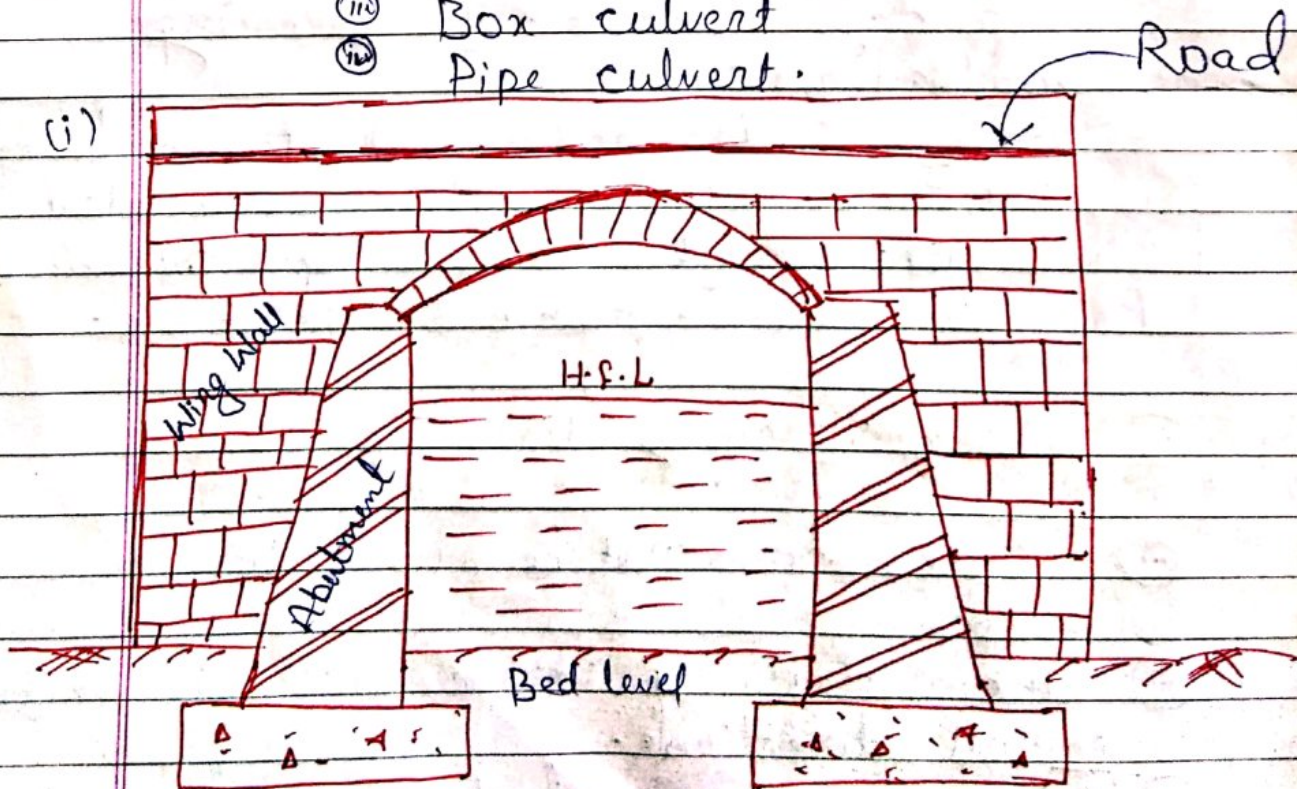 (iii) Box culvert
(iv) Pipe culvert.
Road
(i)
H.f.L
Wing Wall
Abutment
Bed level